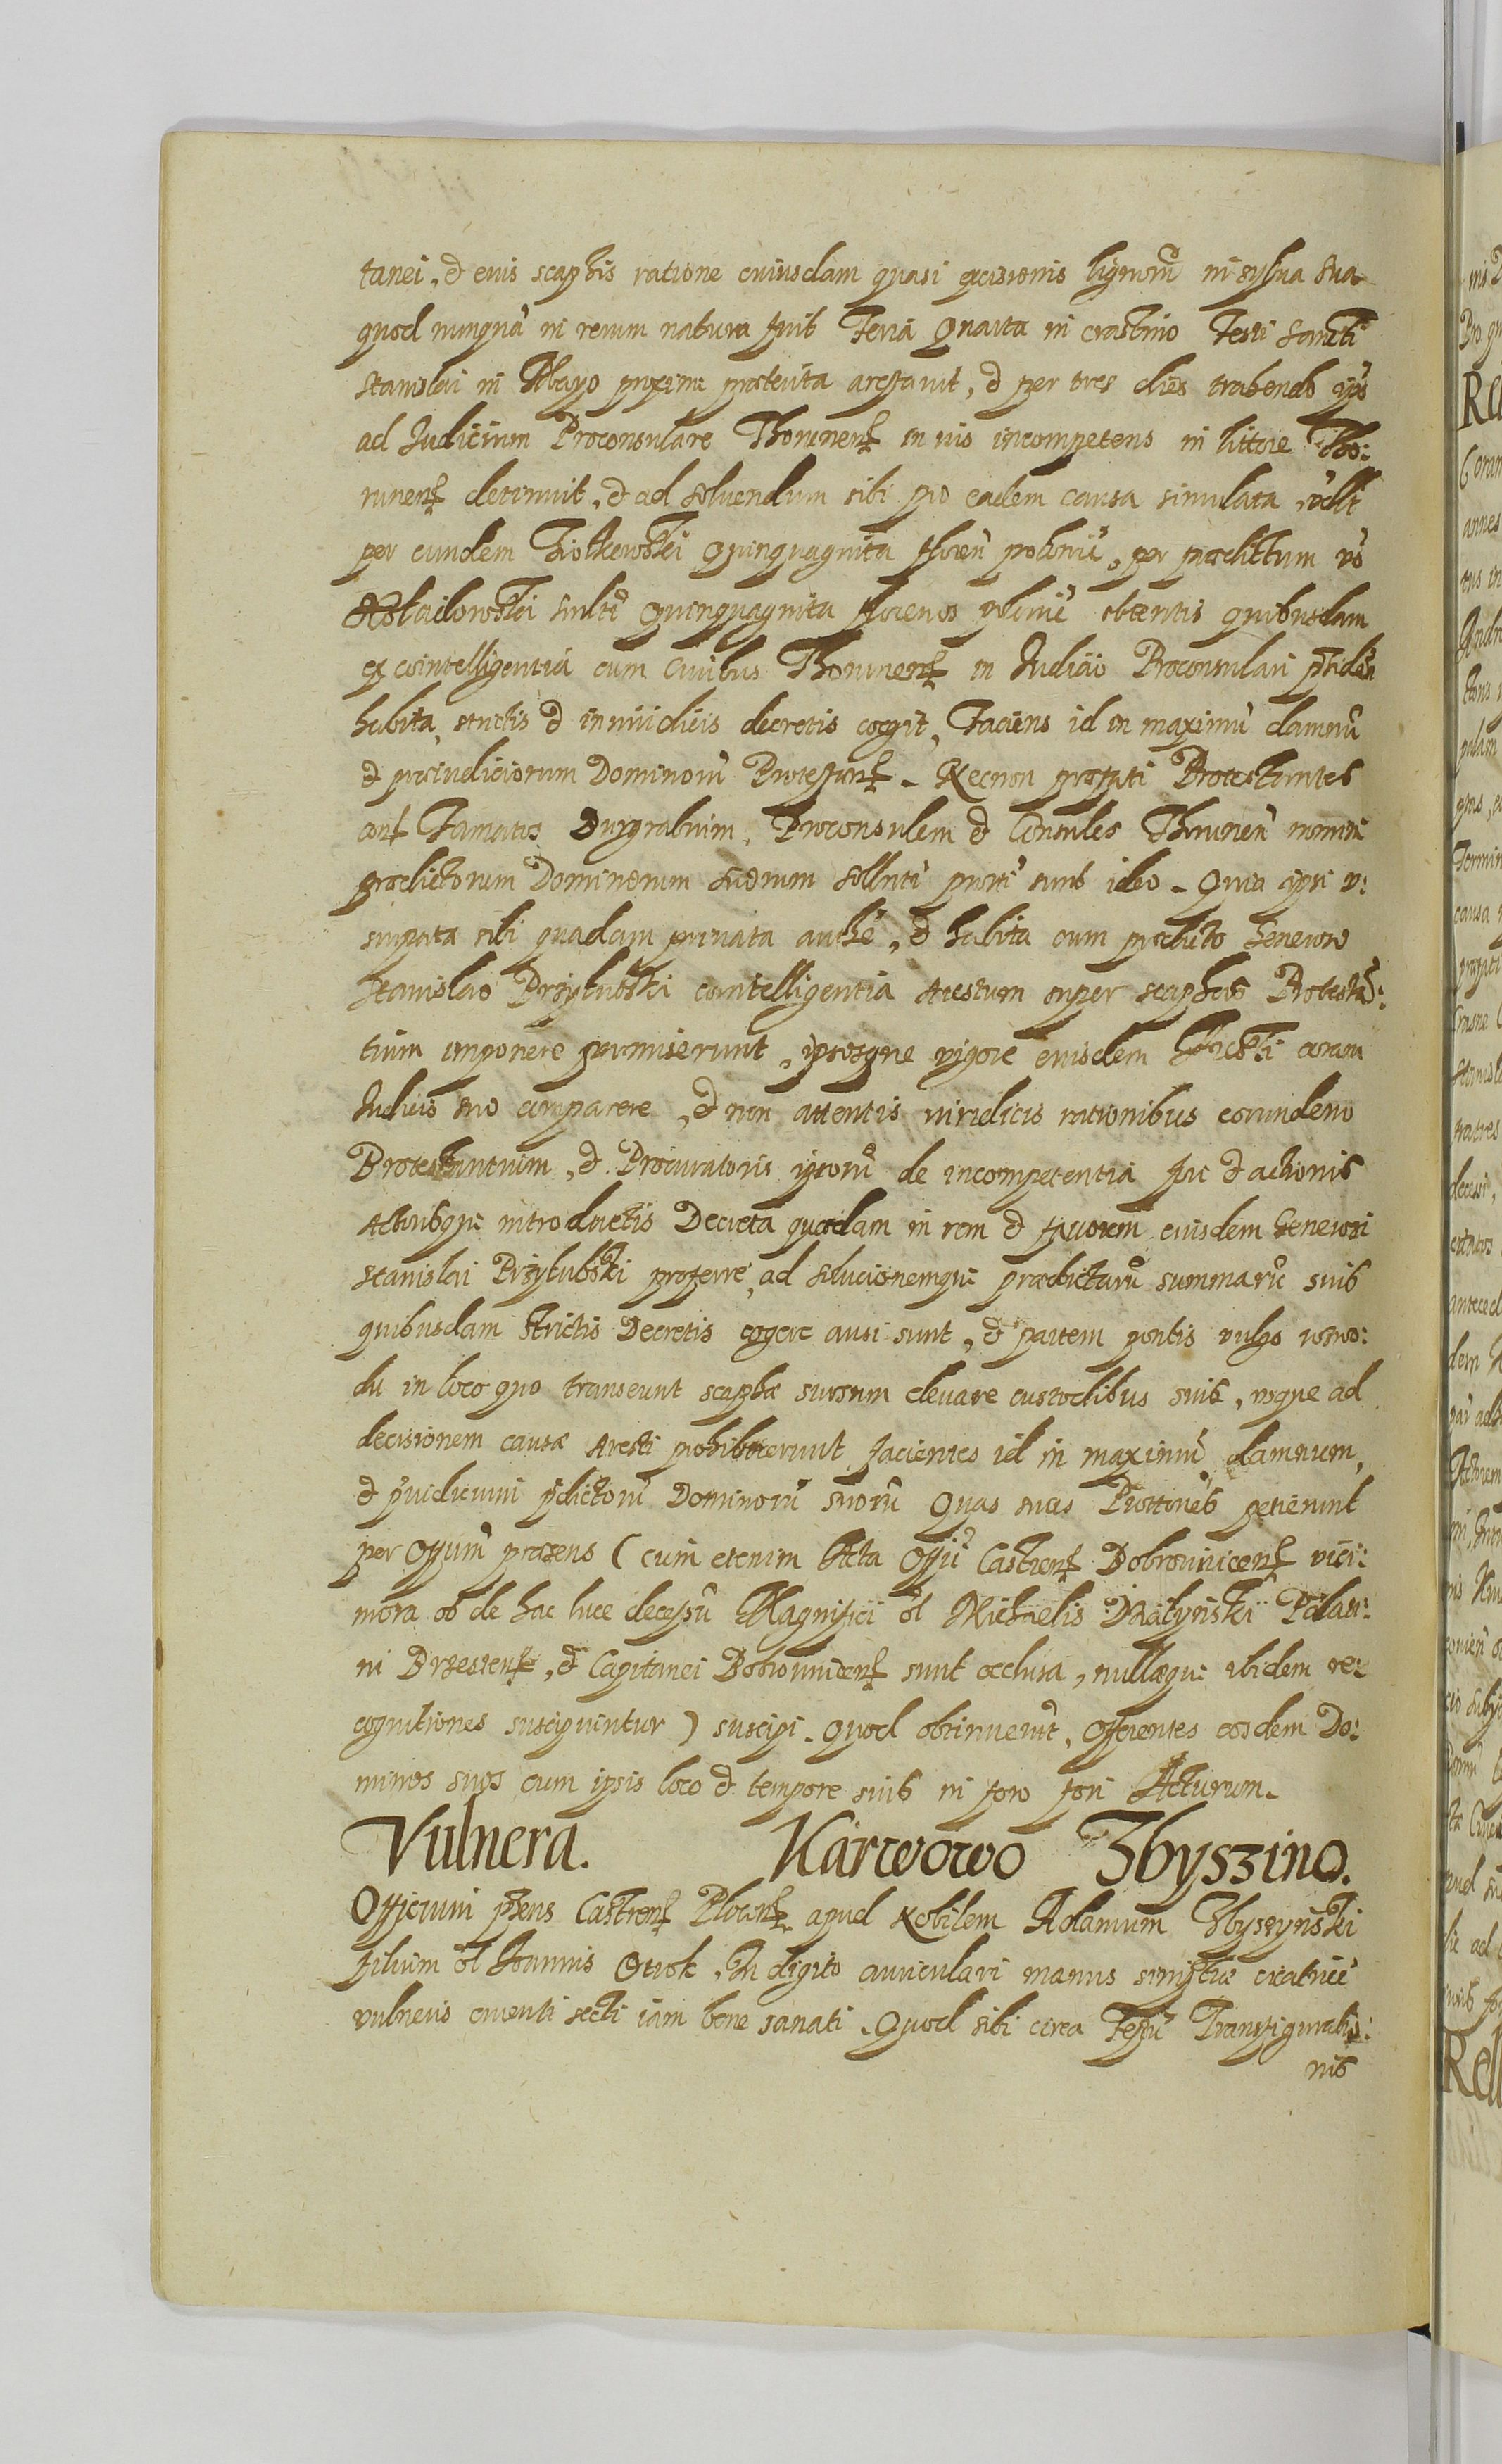 tanei, & eius scaphis ratione cuiusdam quasi excisionis lignorū in sylva sua
quod nunquā in rerum natura fuit Feria Quarta in crastino Festi Sancti
Stanislai in Mayo proxime praeterita arestavit, & per tres dies trahendo ip̄s
ad Iudicium Proconsulare Thorunens in vis incompetens in littore Tho:
runens detinuit, & ad solvendum sibi pro eadem causa simulata, vdlt
per eundem Żołkewski Quinquaginta floren̄ poloniē, per praedictum vō
simlr̄ Quinquaginta florenos obtentis quibusdam
ex cointelligentiā cum Civibus Thorunens in Iudicio Proconsulari p̄tiden
habita, strictis & iniuridicis decretis coegit, Faciens id in maximū damnū
& praeiudiciorum Dominorū Protestans. Necnon praefati Protestantes
cons Famatos Burgrabium, Proconsulem & Consules Thorunen̄ nomine
praedictorum Dominorum suorum sollniter protti sunt ideo. Quia ipsi v:
surpata sibi quadam privata authē, & habita cum praedicto Generoso
Stanislao Przylubski cointelligentia Arestum super scaphas Protestā:
tium imponere permiserunt, ipsosque vigore eiusdem Aresti coram
Iudicio suo comparere, & non attentis viridicis rationibus eorundem
Protestantium, & Procuratoris ipsorū de incompetentia fori & actionis
Actorisque introductis Decreta quaedam in rem & favorem eiusdem Generosi
Stanislai Przylubski proferre, ad solucionemque praedictarū summarū suis
quibusdam strictis Decretis cogere ausi sunt, & partem pontis vulgo
in loco quo transeunt scaphae sursum elevare custodibus suis, usque ad
decisionem causae Aresti prohibuerunt facientes id in maximū damnum,
& p̄iudicium p̄dictorū Dominorū suorū Quas suas Prottones petierunt
per Offum̄ praesens (cum etenim Acta Offii Castrens Dobrzynicens vici:
niora ob de hac luce decessū Magnifici ol Michaelis Działynski Palati:
ni Brzestens, & Capitanei Dobrzynicens sunt occlusa, nullaeque ibidem re:
cognitiones suscipiuntur) suscipi. Quod obtinuerūt, Offerentes eosdem Do:
minos suos cum ipsis loco & tempore suis in foro fori Acturum.
Vulnera. Karwowo Zbyszino.
Officium p̄sens Castrens Plocens apud Nobilem Adamum Zbyszynski
filium ol Ioannis Otrok, In digito auriculari manus sinistrae cicatricē
vulneris cruenti secti iam bene sanati. Quod sibi circa Festū Transfiguratio:
nis